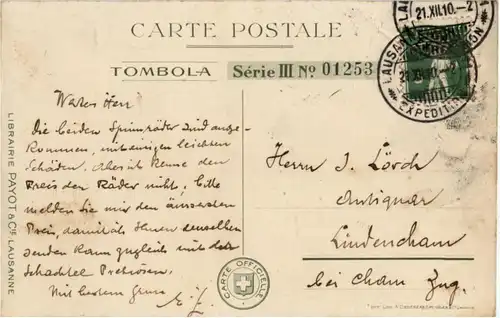 CARTE POSTALE
TOMBOLA Série III No 01253
21.XII.10.-2
LAUSANNE
EXPEDITION
Wertes Herr
Die beiden Spinnräder sind ange-
kommen, mit einigen leichten
Schäden. Aber ich kenne den
Preis der Räder nicht, bitte
melden Sie mir den äussersten
Preis, damit ich Ihnen denselben
senden kann zugleich mit der
Schachtel Pretiosen.
Mit bestem Gruss
Herrn J. Lörch
Antiquar
Lindencham
bei Cham Zug.
LIBRAIRIE PAYOT & Cie LAUSANNE
CARTE OFFICIELLE